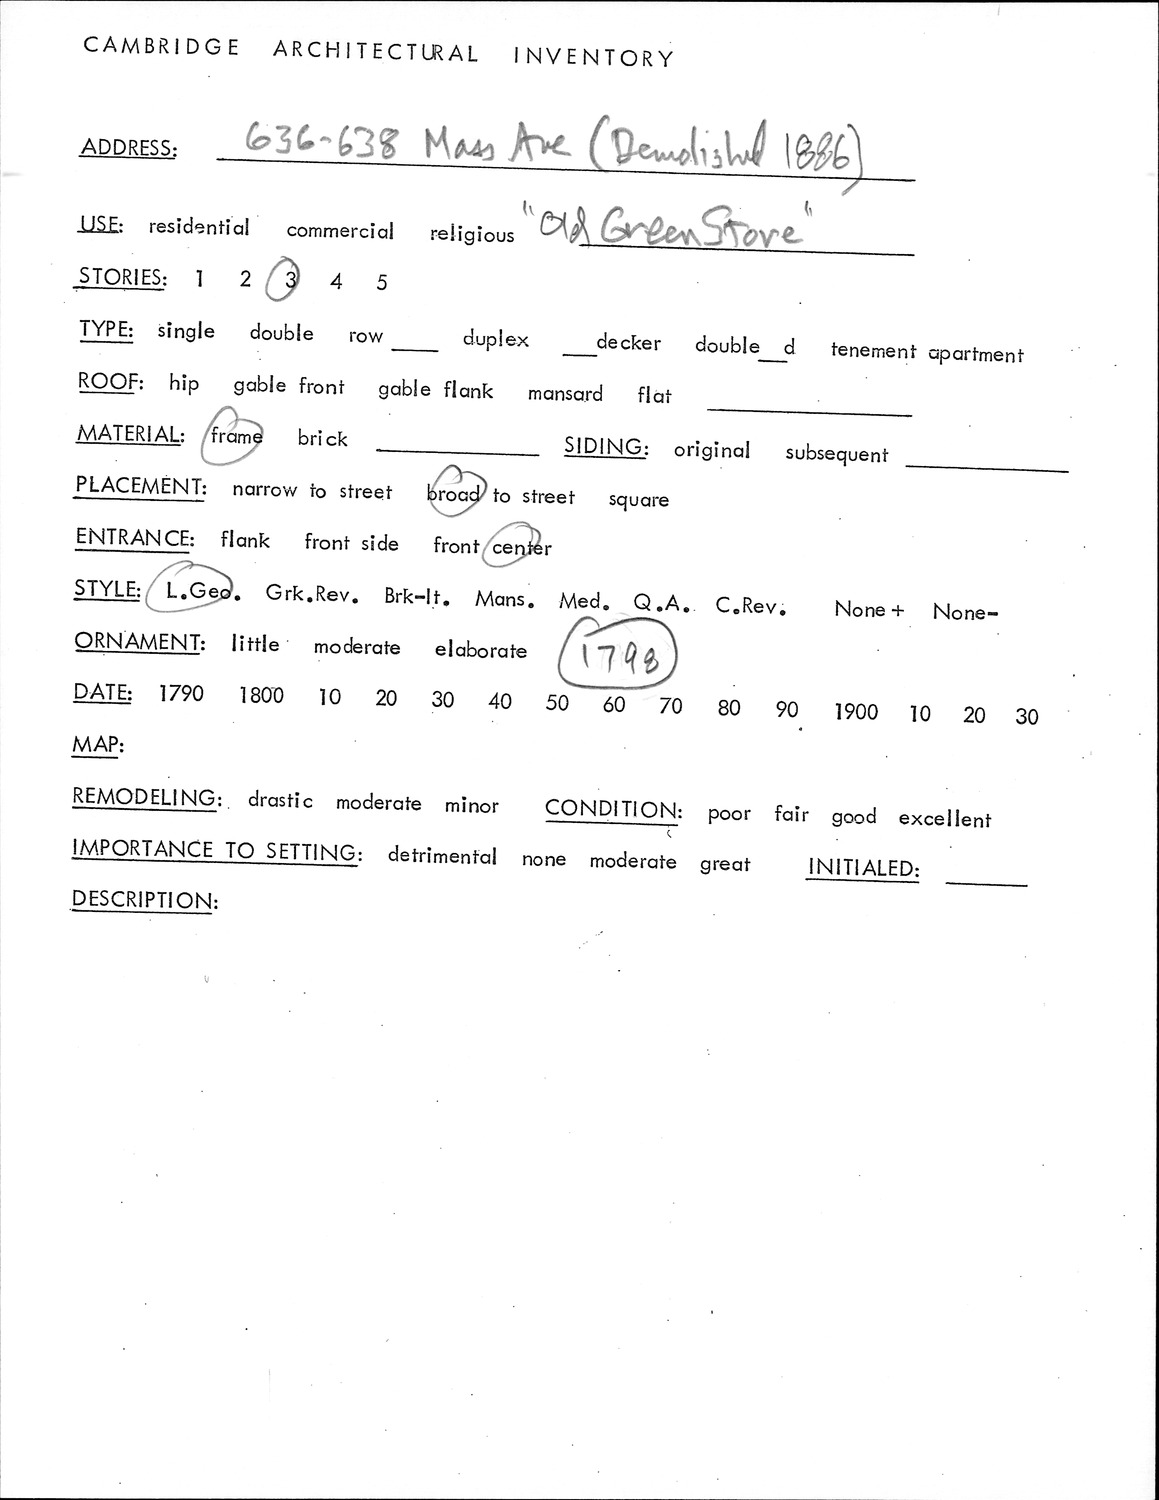 CAMBRIDGE ARCHITECTURAL INVENTORY
ADDRESS: 636-638 Mass Ave (Demolished 1886)
USE: residential commercial religious "Old Green Store"
STORIES: 1 2 3 4 5
TYPE: single double row ____ duplex ____decker double___d tenement apartment
ROOF: hip gable front gable flank mansard flat ____
MATERIAL: frame brick ____ SIDING: original subsequent ____
PLACEMENT: narrow to street broad to street square
ENTRANCE: flank front side front center
STYLE: L.Geo. Grk.Rev. Brk-It. Mans. Med. Q.A. C.Rev. None+ None-
ORNAMENT: little moderate elaborate 1798
DATE: 1790 1800 10 20 30 40 50 60 70 80 90 1900 10 20 30
MAP:
REMODELING: drastic moderate minor CONDITION: poor fair good excellent
IMPORTANCE TO SETTING: detrimental none moderate great INITIALED: ____
DESCRIPTION: